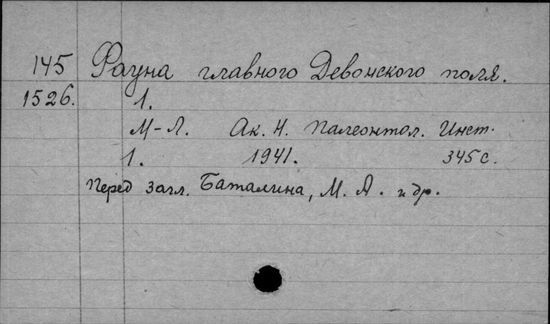 145 Фауна главного Девонского поля.
1526. 1.
М-Л. Ак. Н. Палеонтол. Инст.
1. 1941. 345 с.
Перед загл. Баталина, М. А. и др.